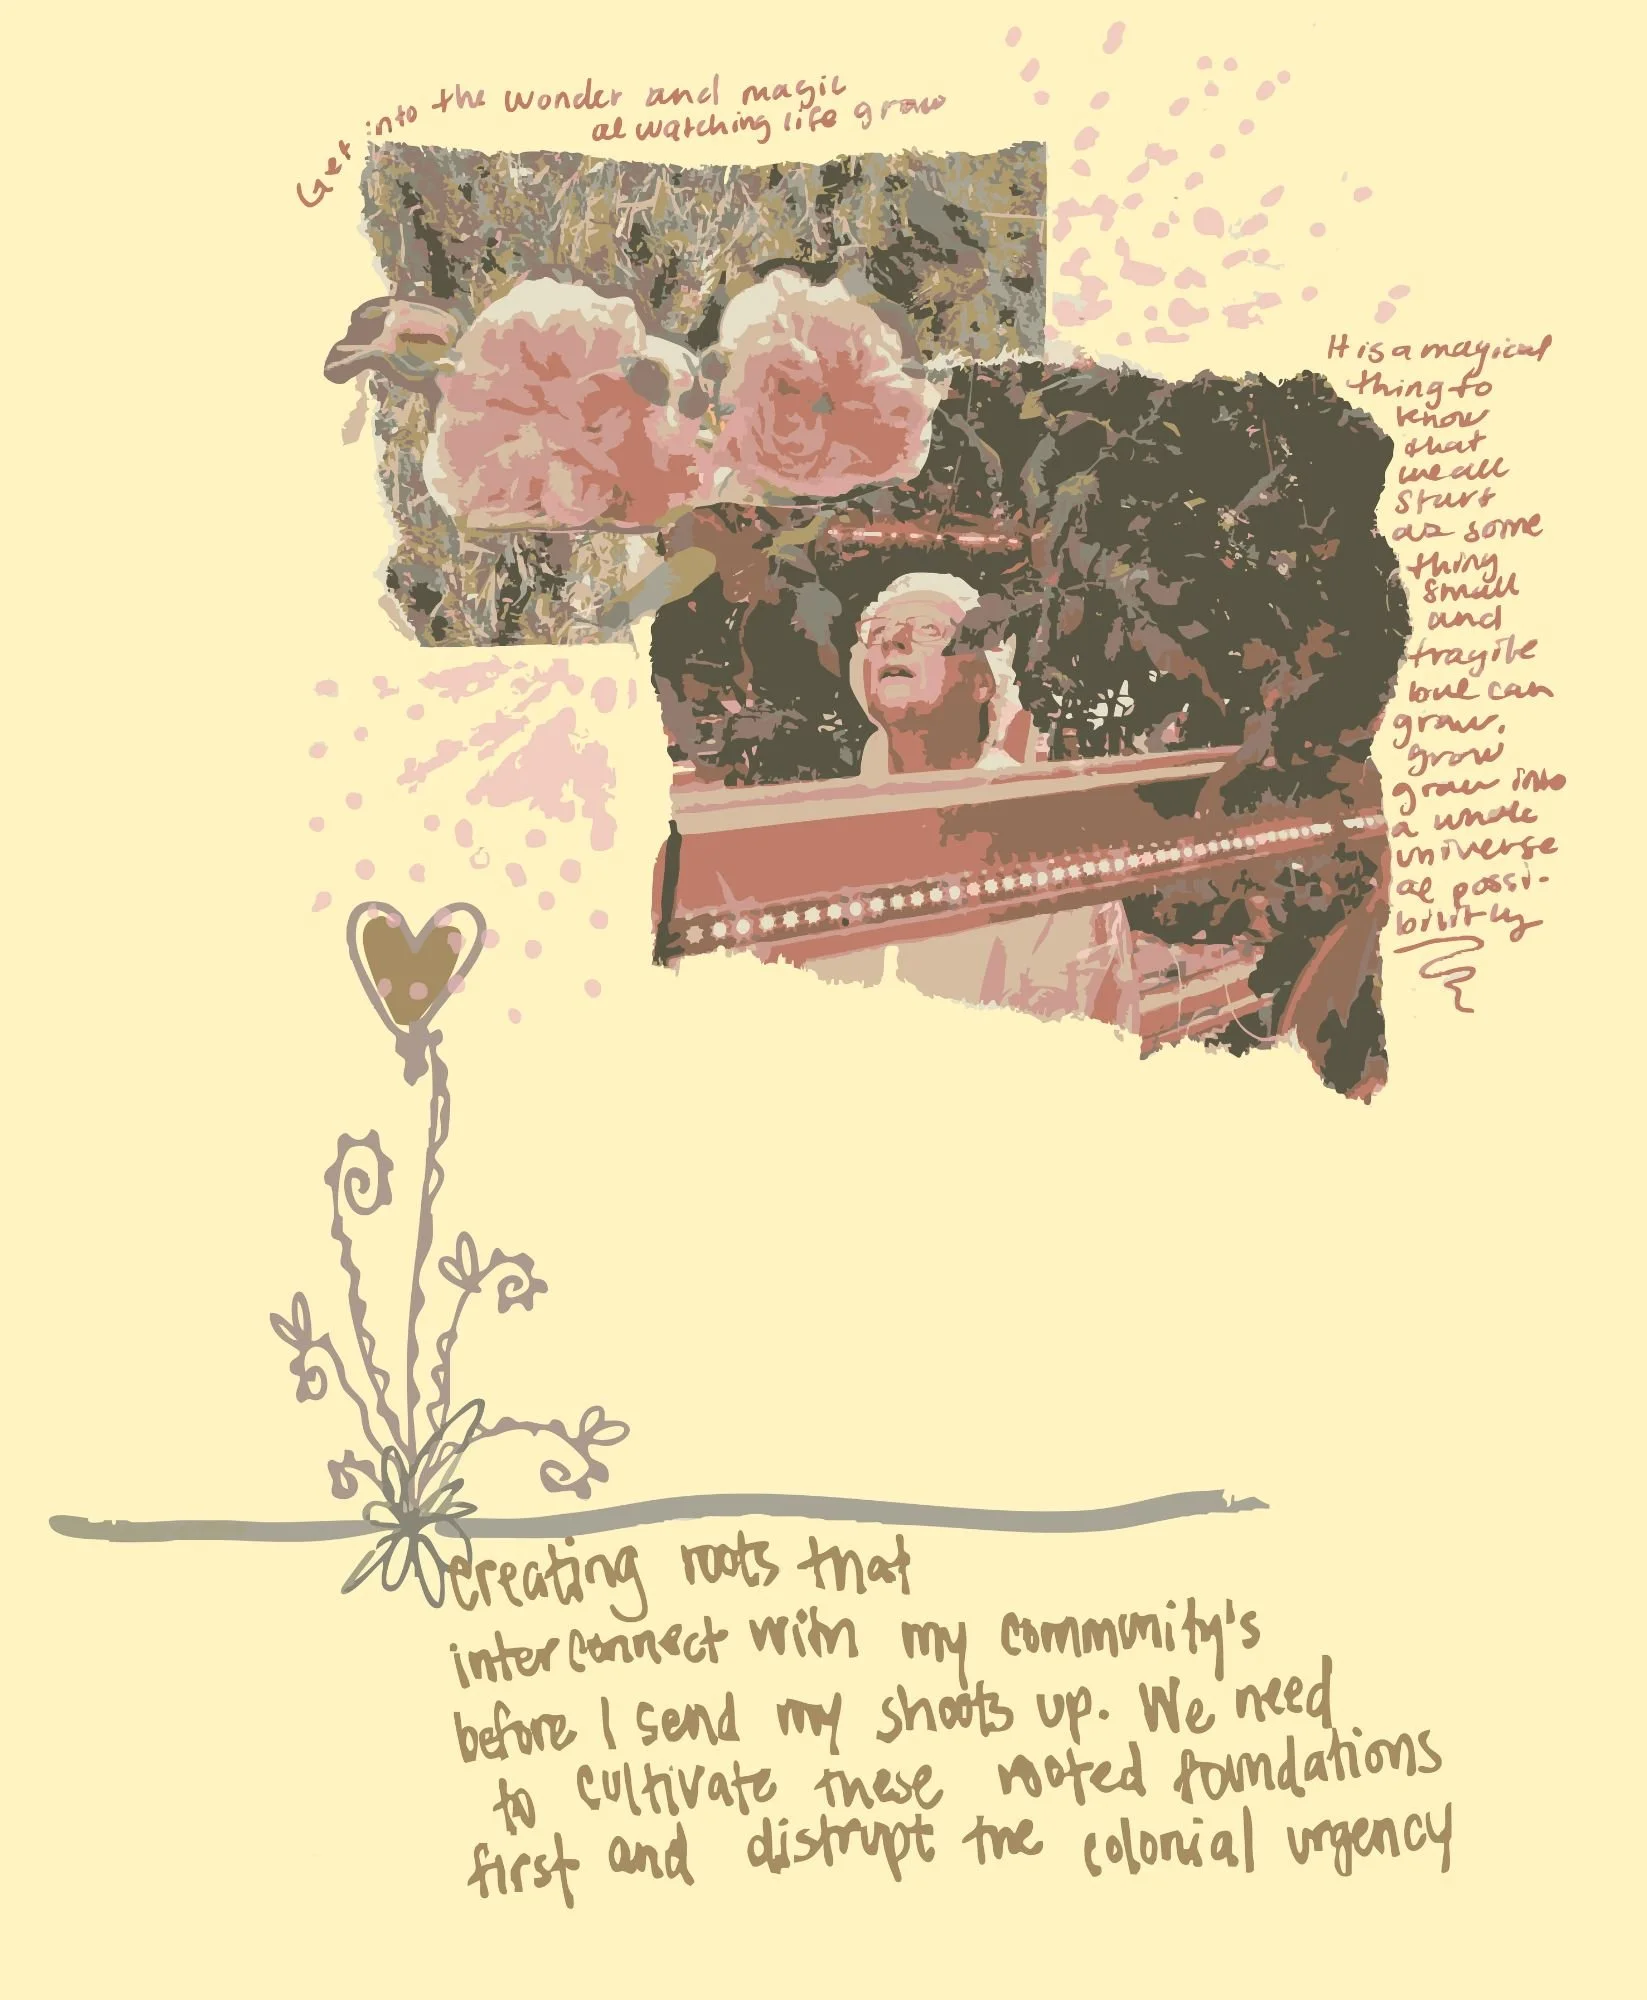 Get into the wonder and magic
of watching life grow
It is a magical
thing to
know
that
we all
start
as some
thing
small
and
fragile
but can
grow,
grow
grow into
a whole
universe
of possi-
bility
creating roots that
interconnect with my community's
before I send my shoots up. We need
to cultivate these rooted foundations
first and distrupt the colonial urgency